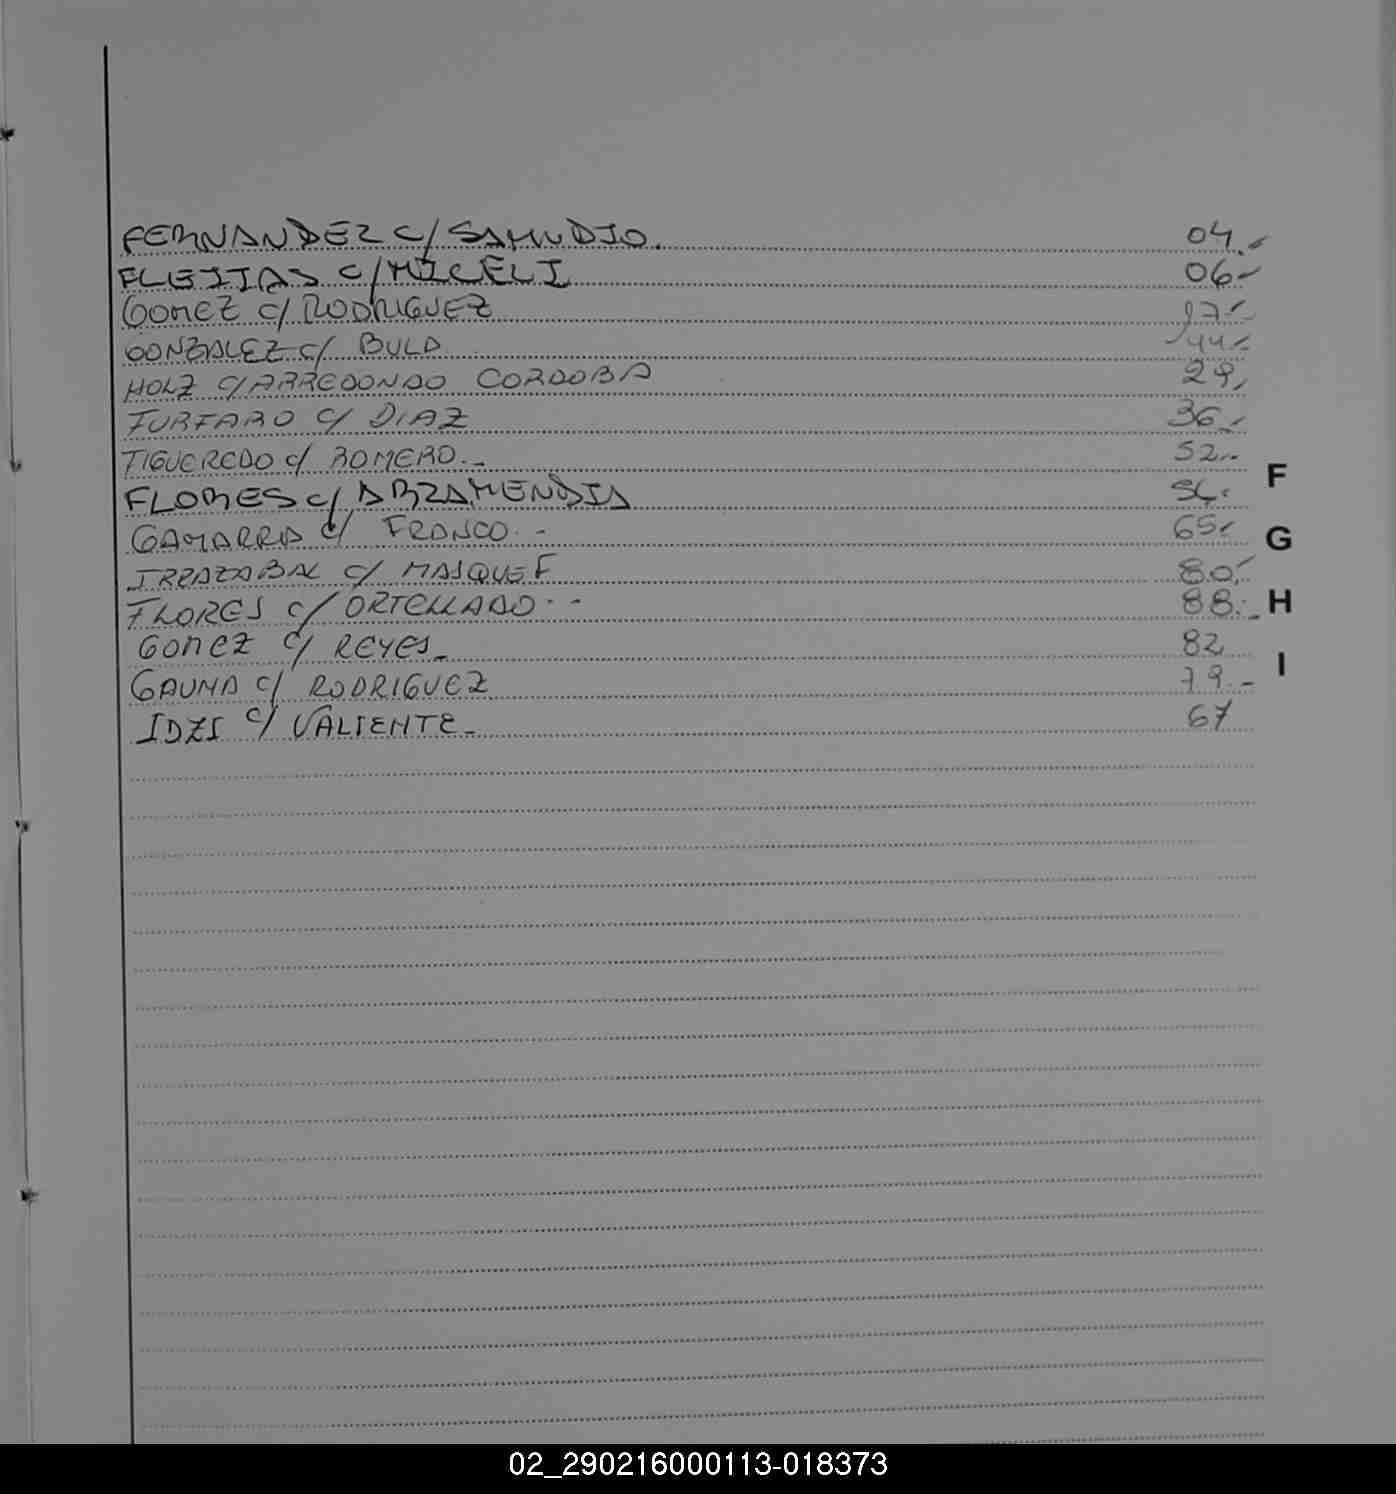 FERNANDEZ C/ SAMUDIO. 04.-
FLEITAS C/ MICELI 06-
GOMEZ C/ RODRIGUEZ 17.-
GONZALEZ C/ BULA 44.-
HOLZ C/ ARREDONDO CORDOBA 29.
FURFARO C/ DIAZ 36.-
FIGUEREDO C/ ROMERO.- 52.-
FLORES C/ ARZAMENDIA
GAMARRA C/ FRANCO.- 65.-
IRRAZABAL C/ MASQUEF 80.-
FLORES C/ ORTELLADO.- 88.-
GOMEZ C/ REYES.- 82
GAUNA C/ RODRIGUEZ 79.-
IDZI C/ VALIENTE.- 67
F
G
H
I
02_290216000113-018373